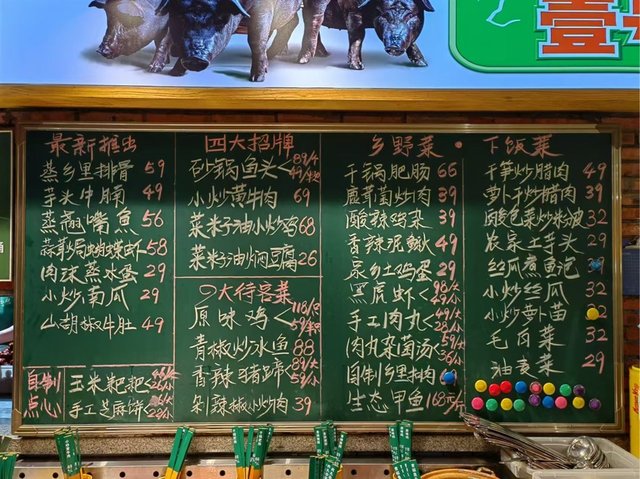 壹
最新推出
蒸乡里排骨 59
芋头牛腩 49
蒸翘嘴鱼 56
蒜蓉蒸蝴蝶虾 58
肉沫蒸水蛋 29
小炒南瓜 29
山胡椒牛肚 49
自制点心
玉米粑粑
手工芝麻饼
四大招牌
砂锅鱼头 89/
小炒黄牛肉 69
菜籽油小炒鸡 68
菜籽油炒焖豆腐 26
大待客菜
原味鸡 118/
青椒炒水鱼 88
香辣猪蹄 89/大 59/小
剁辣椒小炒肉 39
乡野菜
干锅肥肠 66
芦茸菌炒肉 39
酸辣鸡杂 39
香辣泥鳅 49
家乡土鸡蛋 29
黑虎虾 98/大
手工肉丸 49/大 28/小
肉丸杂菌汤 59/大 36/小
自制乡里排肉
生态甲鱼 168元/斤
下饭菜
干笋炒腊肉 49
萝卜干炒腊肉 39
酸包菜炒粉皮 32
农家土芋头 29
丝瓜煮鱼泡
小炒丝瓜 32
小炒萝卜苗
毛白菜 32
油麦菜 29